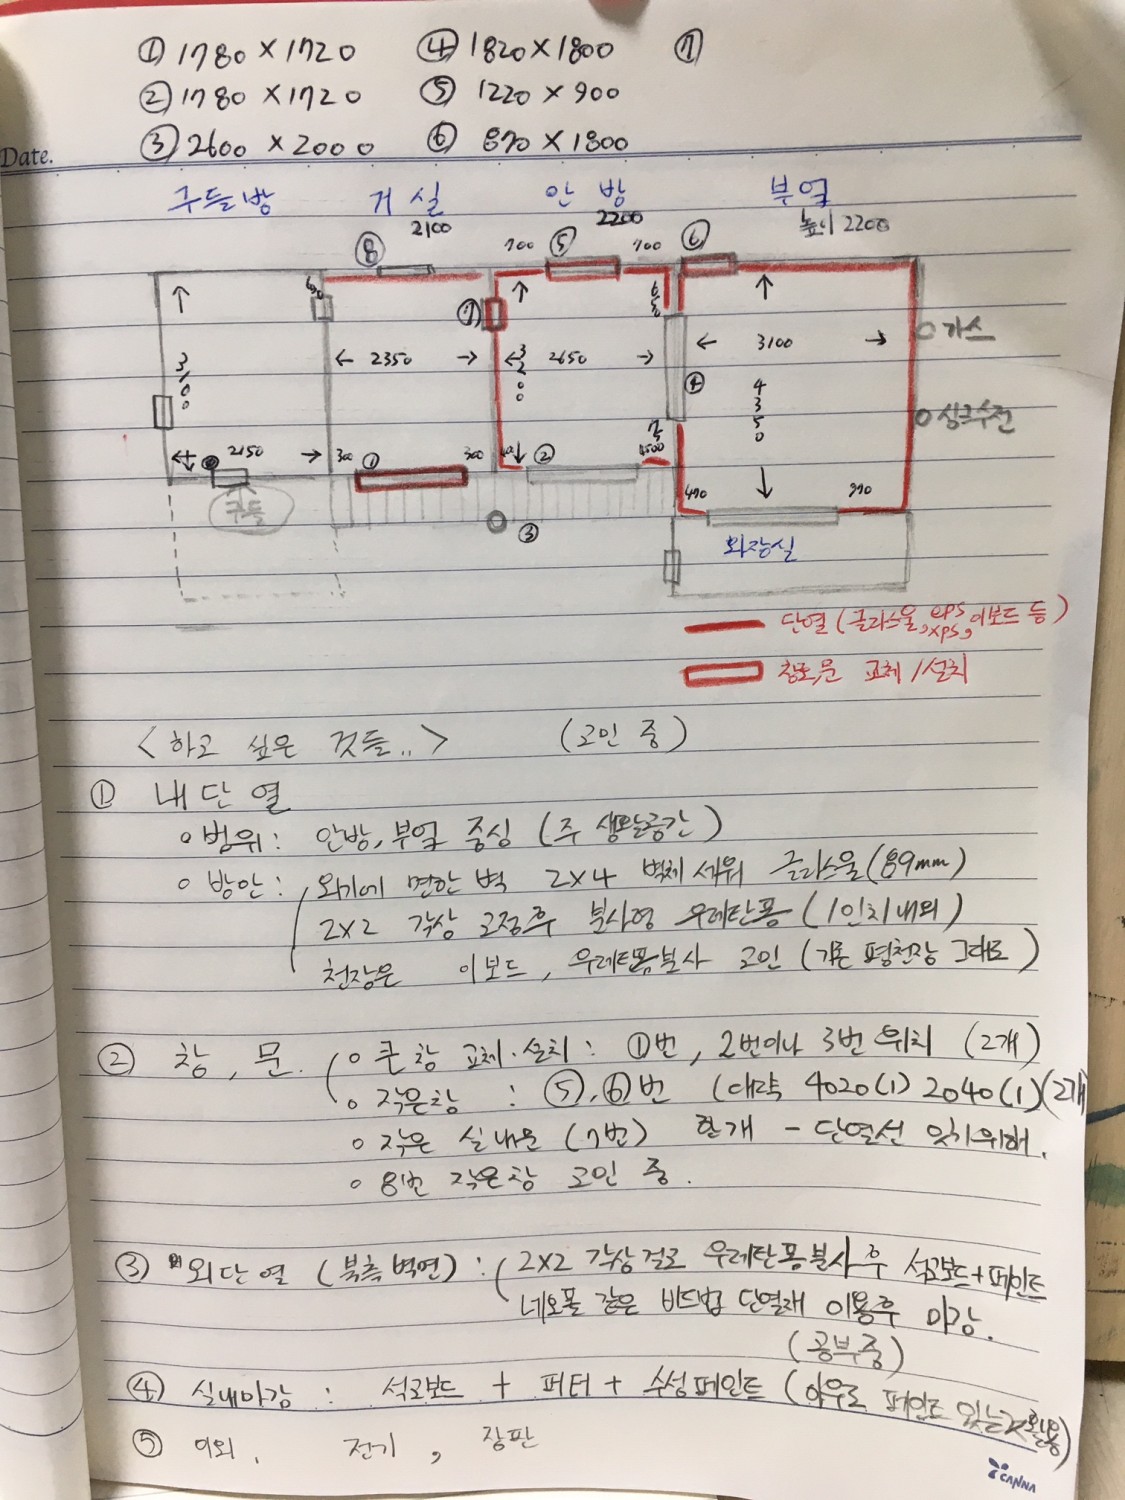 ① 1780 × 1720 ④ 1820 × 1800 ⑦
② 1780 × 1720 ⑤ 1220 × 900
③ 2600 × 2000 ⑥ 870 × 1800
Date.
구들방 거실 안방 부엌
2100 2200 높이 2200
⑧ 700 ⑤ 700 ⑥
⑦
가스
2350 2650 3100
3100 3200 4350
④
싱크수전
2150 300 ① 300 ② 500
구들
③
490 890
화장실
단열 (글라스울, eps, xps, 이보드 등)
창호, 문 교체/설치
<하고 싶은 것들..> (고민 중)
① 내단열
○ 범위: 안방, 부엌 중심 (주 생활공간)
○ 방안: 외기에 면한 벽 2×4 벽체 세워 글라스울(89mm)
2×2 각상 고정후 분사형 우레탄폼 (1인치 내외)
천장은 이보드, 우레탄폼분사 고민 (기존 평천장 그대로)
② 창, 문. ○ 큰 창 교체·설치: ①번, 2번이나 3번 위치 (2개)
○ 작은창 : ⑤, ⑥번 (대략 4020(1) 2040(1)(2개
○ 작은 실내문 (7번) 한개 - 단열선 잇기위해.
○ 8번 작은창 고민 중.
③ 외단열 (북측 벽면): 2×2 각상 걸로 우레탄폼분사 후 석고보드+페인트
네오폴 같은 비드법 단열재 이용후 마감.
(공부중)
④ 실내마감 : 석고보드 + 퍼터 + 수성페인트 (아우로 페인트 있는거 활용)
⑤ 이외. 전기, 장판
CANNA